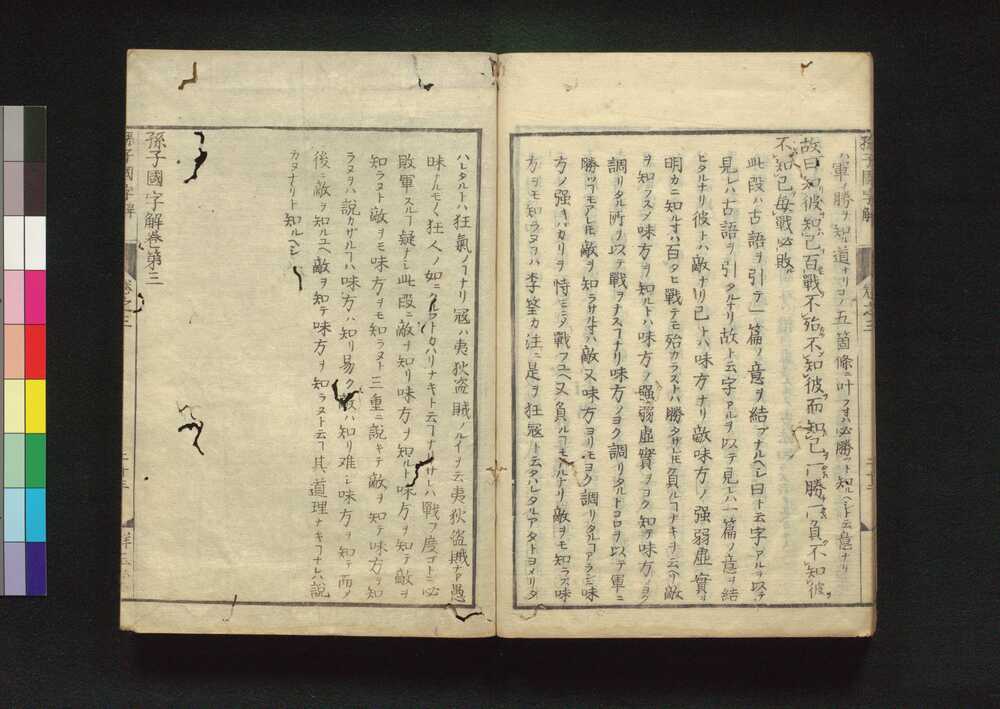 孫子國字解 卷之三
ハ軍ノ勝ヲ知道ナリコノ五箇條ニ叶フ者ハ必勝ト知ルヘシト云意ナリ
故曰知彼知己百戰不殆不知彼而知己一勝一負不知彼
不知己毎戰必敗
此段ハ古語ヲ引テ一篇ノ意ヲ結フナルヘシ曰ト云字アルヲ以テ
見レハ古語ヲ引タルナリ故ト云字アルヲ以テ見レハ一篇ノ意ヲ結
ヒタルナリ彼トハ敵ナリ己トハ味方ナリ敵味方ノ強弱虚實ヲ
明カニ知ルナハ百タヒ戰テモ殆カラズトハ勝タサレモ負ルコナキヲ云ヘリ敵
ヲ知ラスメ味方ヲ知ルトハ味方ノ強弱虚實ヲヨク知テ味方ノヨク
調リタル所ヲ以テ戰ヲナスコナリ味方ノヨク調リタルトコロヲ以テ軍ニ
勝ツコモアレ𪜈敵ヲ知ラサルユヘ敵又味方ヨリモヨク調リタルコアラシニ味
方ノ強キハカリヲ恃ミテ戰フユヘ又負ルコモアルナリ敵ヲモ知ラズ味
方ヲモ知ラヌヲハ李筌カ注ニ是ヲ狂冦ト云タハレタルアタトヨメリタ
ハレタルトハ狂氣ノコナリ冦ハ夷狄盗賊ノルイヲ云夷狄盗賊ナト愚
昧ナルモノヽ狂人ノ如ニクルフトカハリナキト云コナリサレハ戰フ度コトニ必
敗軍スルコ疑ナシ此段ニ敵ヲ知リ味方ヲ知ルト味方ヲ知テ敵ヲ
知ラヌト敵ヲモ味方ヲモ知ラヌト三重ニ説キテ敵ヲ知テ味方ヲ知
ラヌヲハ説カサルコハ味方ハ知リ易ク敵ハ知リ难シ味方ヲ知テ而メ
後ニ敵ヲ知ルユヘ敵ヲ知テ味方ヲ知ラヌト云コハ其道理ナキコナレハ説
カヌナリト知ルヘシ
孫子國字解卷第三
孫子國字解 卷之三